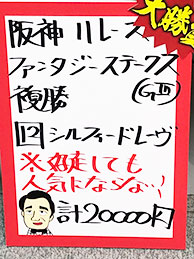 十勝
阪神 11レース
ファンタジーステークス
複勝 (GⅢ)
12 シルフィードレーヴ
※好走しても
人気にならない!
計20000円